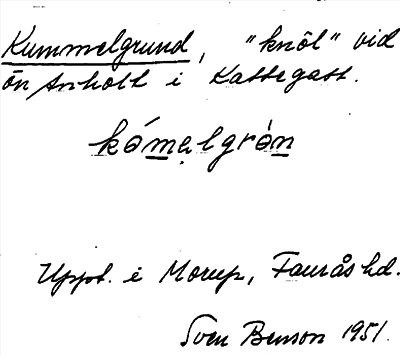 Kummelgrund, "knöl" vid
ön Anholt i Kattegatt.
kómalgròn
Uppt. i Morup, Faurås hd.
Sven Benson 1951.